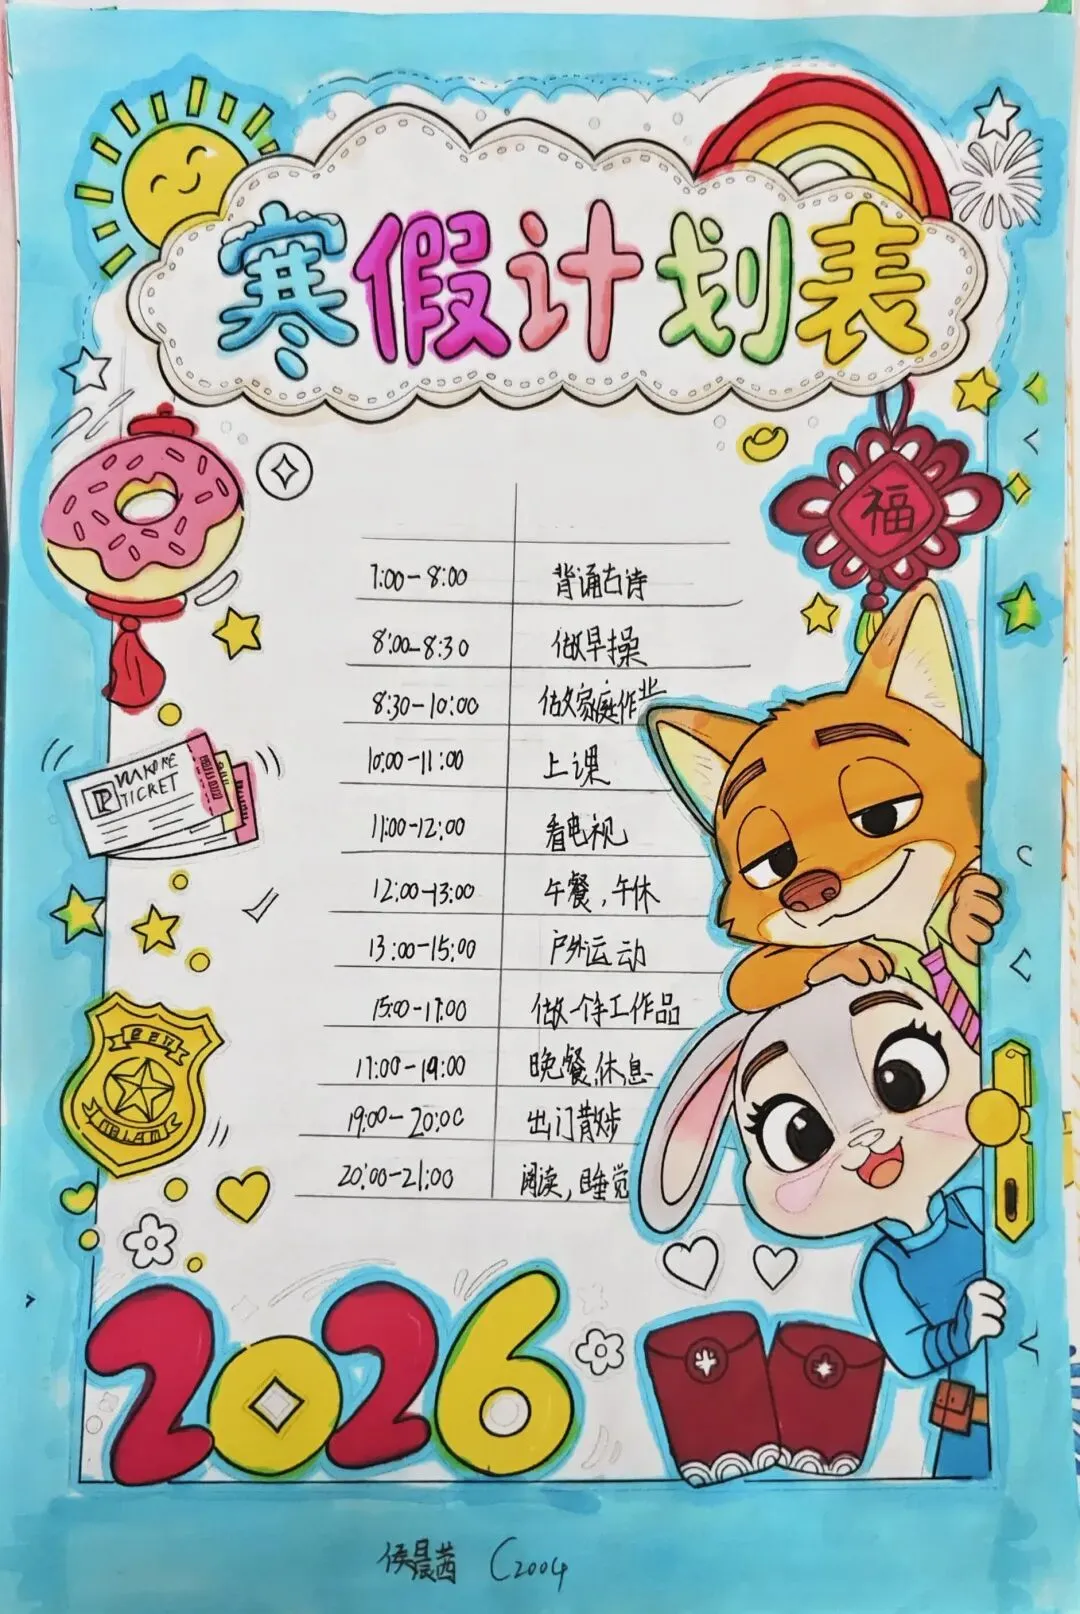 寒假计划表
福
7:00-8:00 背诵古诗
8:00-8:30 做早操
8:30-10:00 做家庭作业
10:00-11:00 上课
11:00-12:00 看电视
12:00-13:00 午餐,午休
13:00-15:00 户外运动
15:00-17:00 做一个手工作品
17:00-19:00 晚餐,休息
19:00-20:00 出门散步
20:00-21:00 阅读,睡觉
TICKET
2026
侯晨茜 C2004